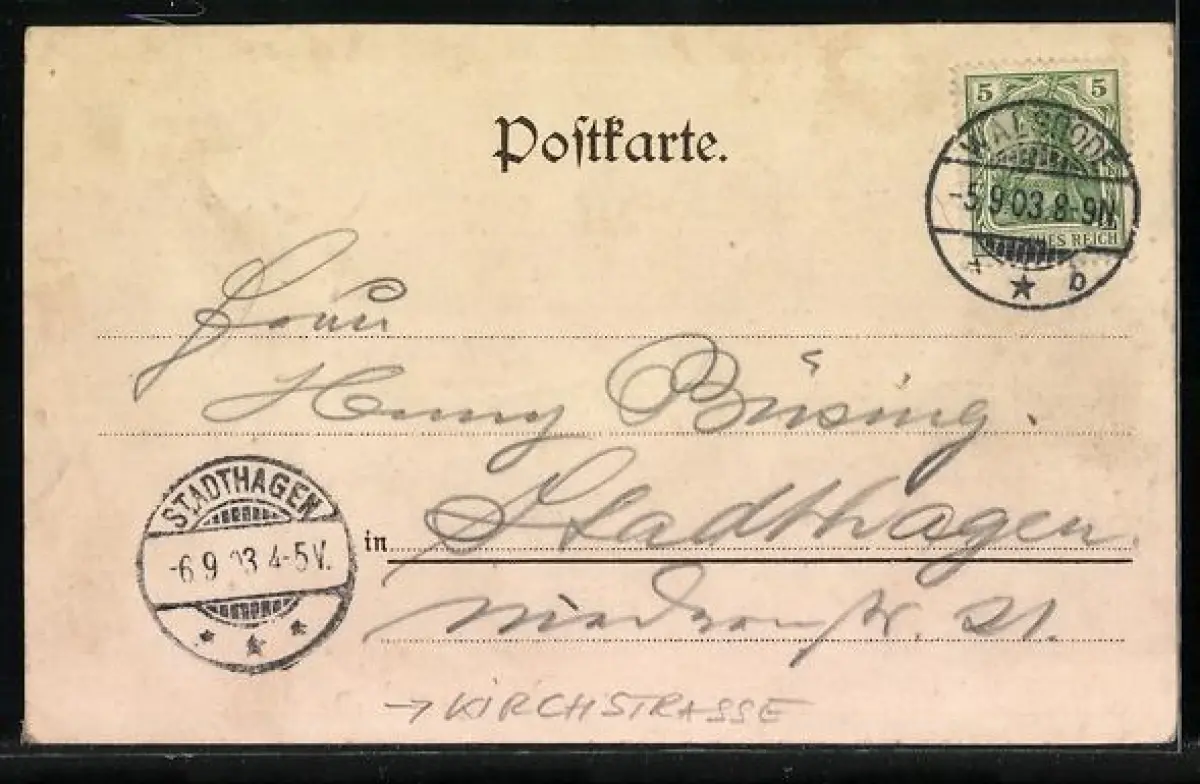 5 5
Postkarte.
WALSRODE
-5.9.03.8-9N.
ES REICH
b
Henny Büsing.
STADTHAGEN
-6.9.03.4-5V.
in Stadthagen.
str. 21.
→ KIRCHSTRASSE